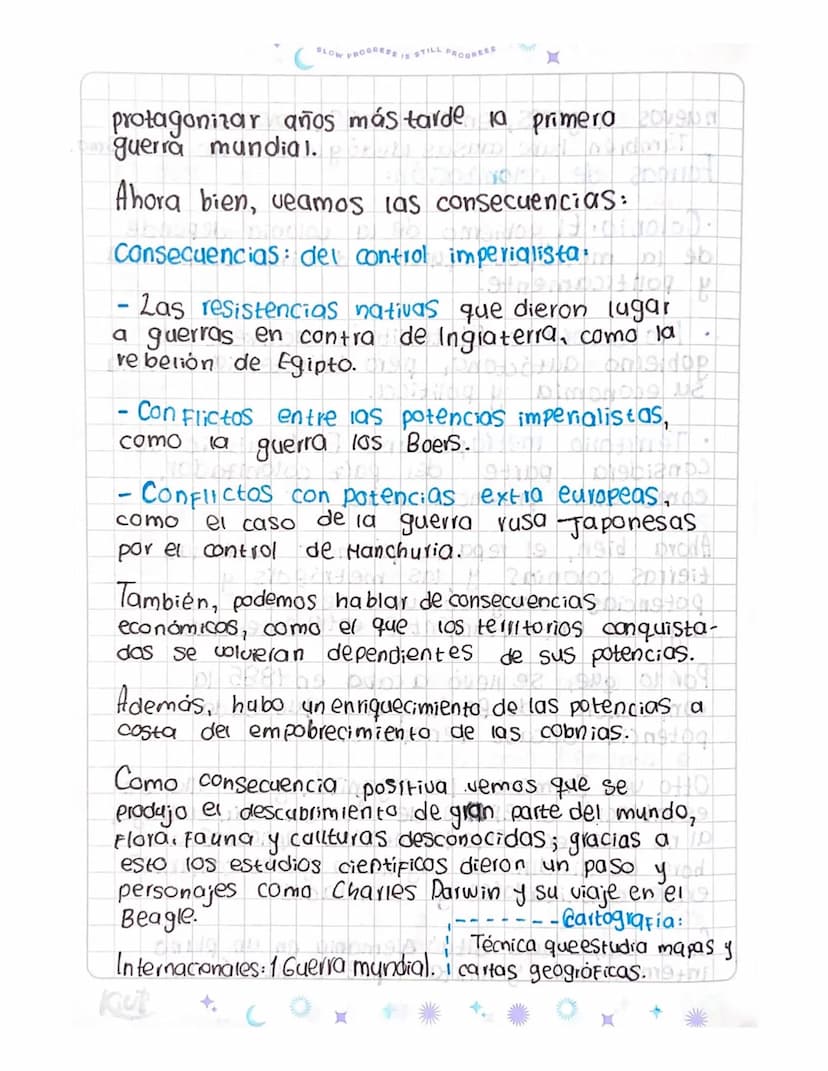 SLOW PROGRESS IS STILL PROGRESS
protagonizar años más tarde la primera
guerra mundial.
Ahora bien, veamos las consecuencias:
Consecuencias: del control imperialista:
- Las resistencias nativas que dieron lugar
a guerras en contra de Inglaterra, como la
rebelión de Egipto.
- Conflictos entre las potencias imperialistas,
como la guerra los Boers.
- Conflictos con potencias extra europeas,
como el caso de la guerra rusa Japonesas
por el control de Manchuria.
También, podemos hablar de consecuencias
económicas, como el que los territorios conquista-
dos se volvieran dependientes de sus potencias.
Además, hubo un enriquecimiento de las potencias a
costa del empobrecimiento de las colonias.
Como consecuencia positiva vemos que se
produjo el descubrimiento de gran parte del mundo,
Flora, Fauna y cullturas desconocidas; gracias a
esto los estudios científicos dieron un paso y
personajes como Charles Darwin y su viaje en el
Beagle.
Internacionales: 1 Guerra mundial.
Cartografía:
Técnica que estudia mapas y
cartas geográficas.
Kiut